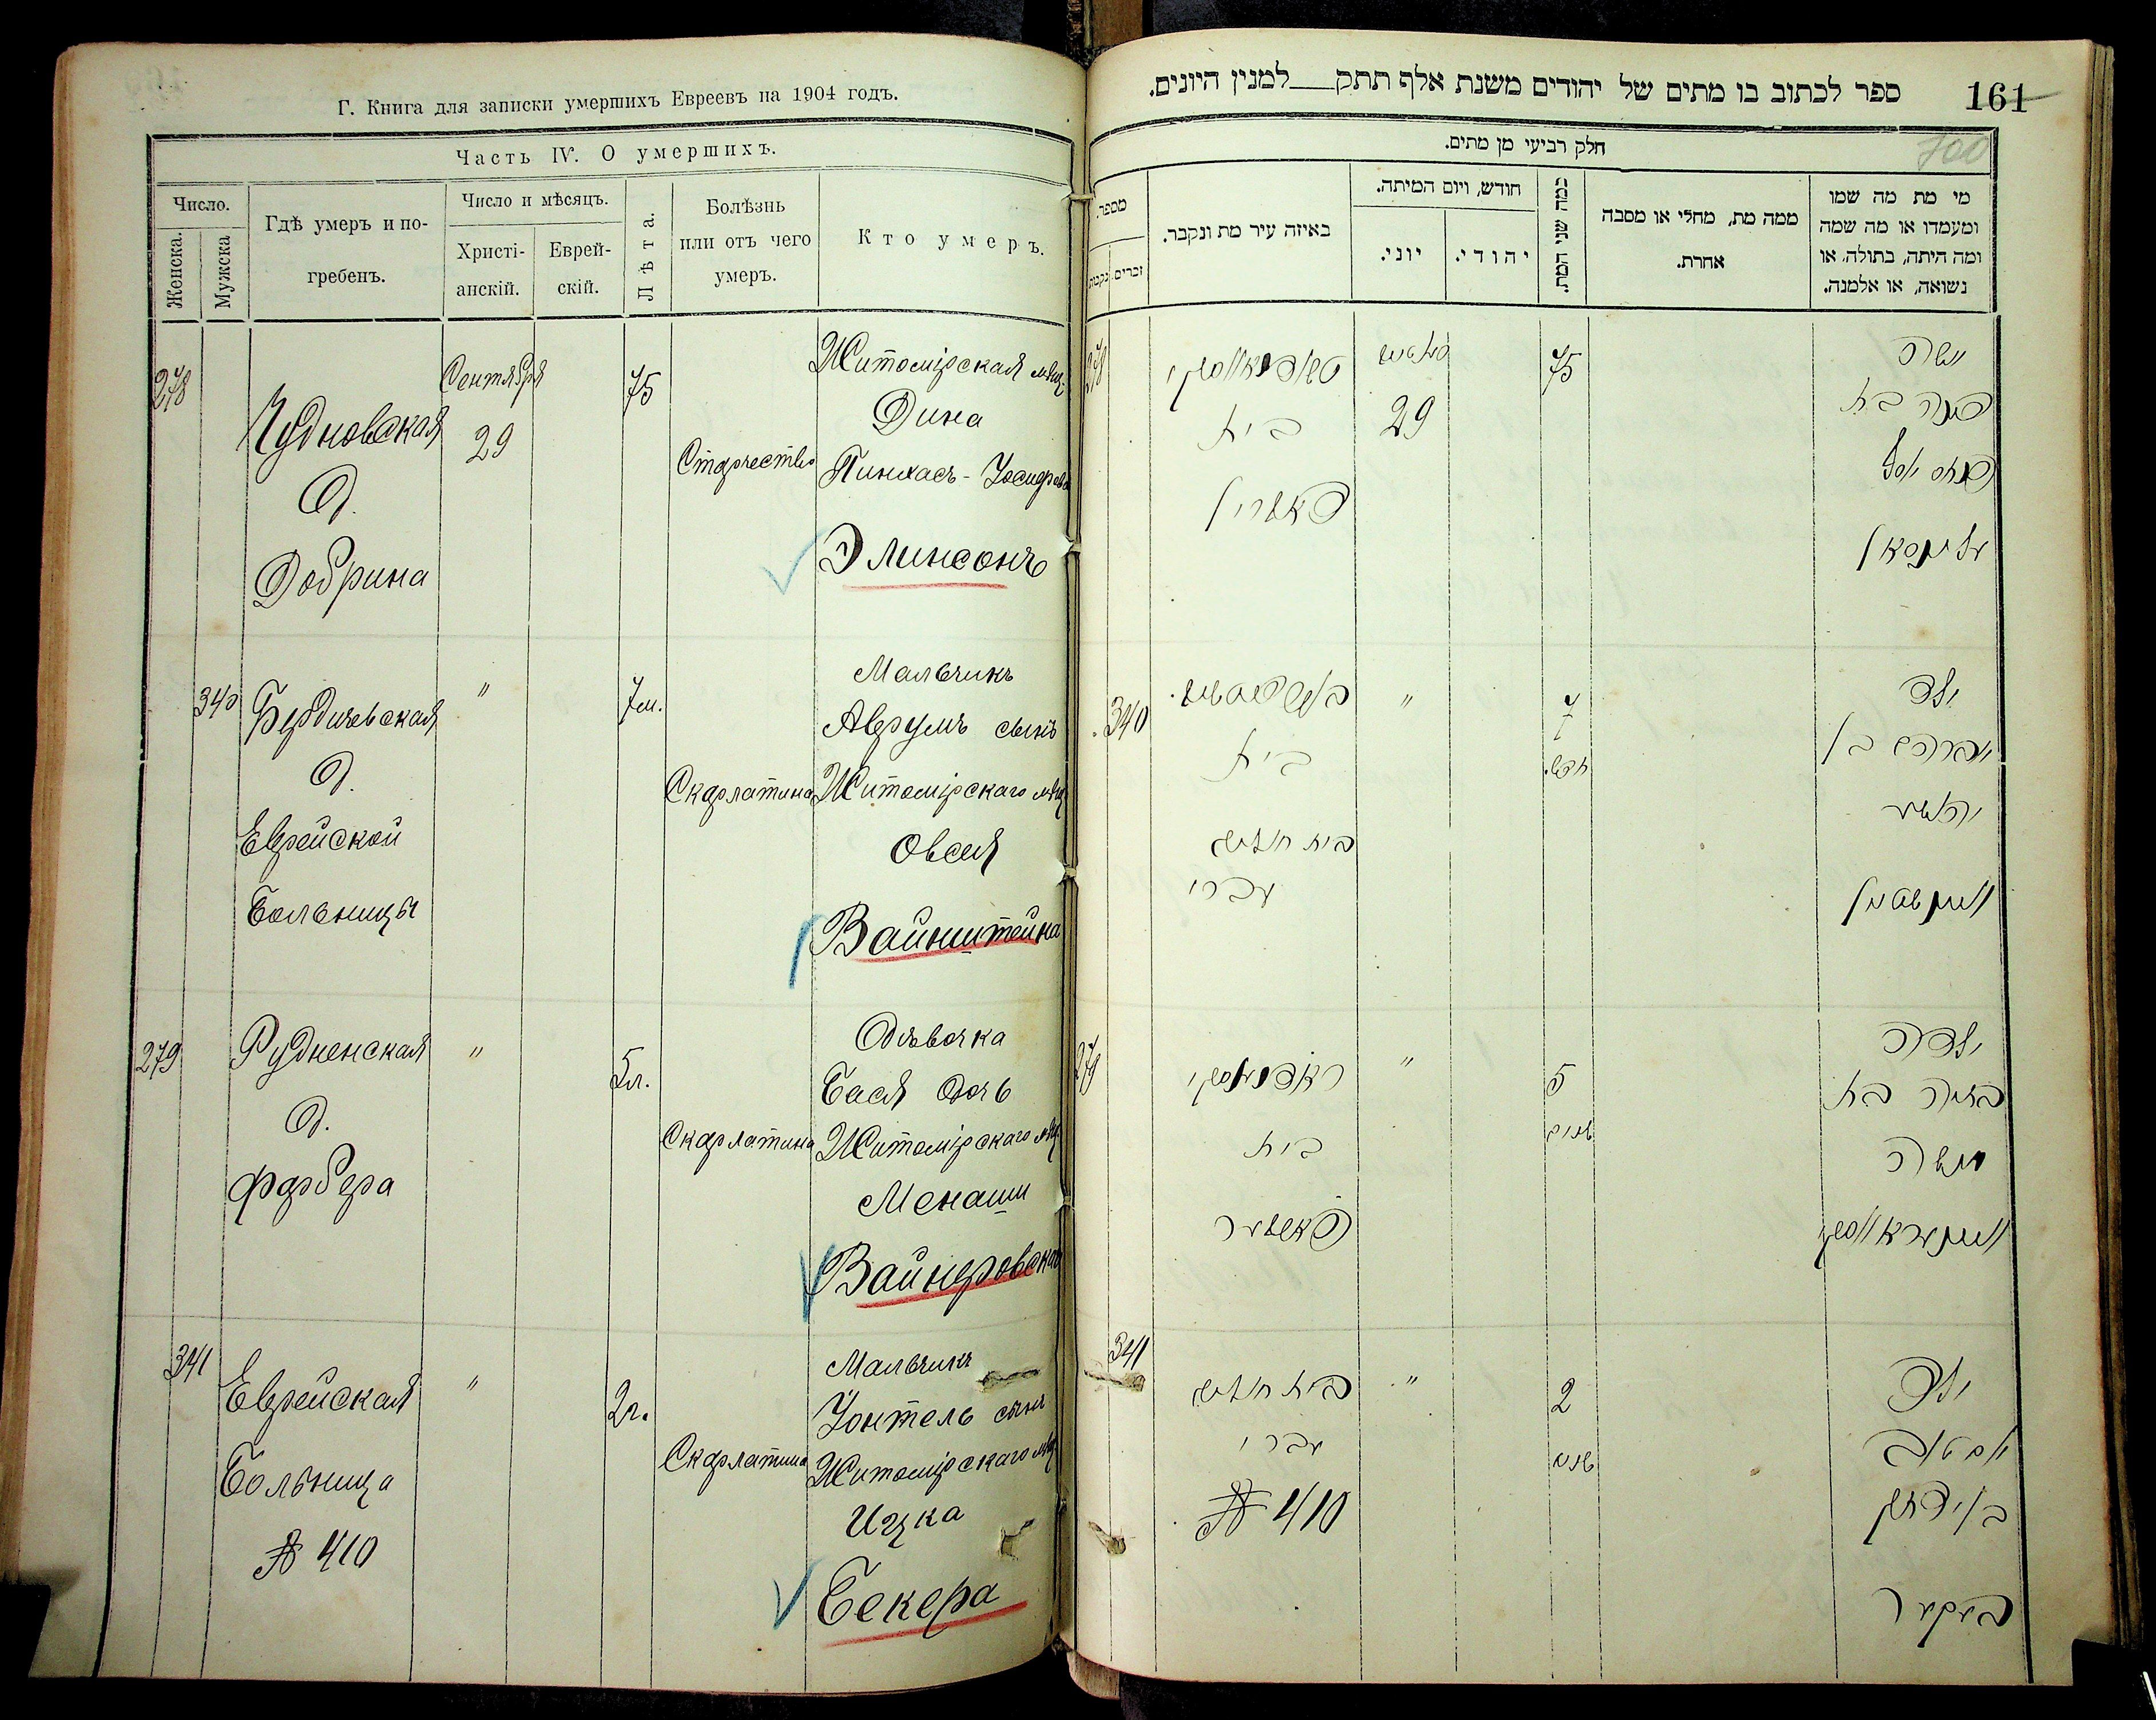 Г. Книга для записки умершихъ Евреевъ на 1904 годъ.
Часть IV. О умершихъ.
Число.
Женска.
Мужска
Гдѣ умеръ и по-
гребенъ.
Число и мѣсяцъ.
Христі-
анскій.
Еврей-
скій.
Лѣта.
Болѣзнь
или отъ чего
умеръ.
Кто умеръ.
278
Чудновская
д.
Добрина
Сентября
29
75
Старчество
Житомірская мѣщ.
Дина
Пинхасъ-Іосифова
Элинсонъ
340
Бердичевская
д.
Еврейской
Больницы
"
7 м.
Скарлатина
Мальчикъ
Аврумъ сынъ
Житомірскаго мѣщ.
Овсея
Вайнштейна
279
Рудненская
д.
Фарбера
"
5 л.
Скарлатина
Дѣвочка
Бася дочь
Житомірскаго мѣщ.
Менаши
Вайнеровскаго
341
Еврейская
Больница
№ 410
"
2 г.
Скарлатина
Мальчикъ
Іонтель сынъ
Житомірскаго мѣщ.
Ицка
Бекера
161
ספר לכתוב בו מתים של יהודים משנת אלף תתק למנין היונים.
700
חלק רביעי מן מתים.
מספר.
זכרים
נקבות
באיזה עיר מת ונקבר.
חודש, ויום המיתה.
יוני.
יהודי.
כמה שני המת.
ממה מת, מחלי או מסבה
אחרת.
מי מת מה שמו
ומעמדו או מה שמה
ומה היתה, בתולה, או
נשואה, או אלמנה.
278
בית
29
75
אשה
דינה בת
עלינסאן
340
בית
בית חולים
עברי
"
7
חדש.
ילד
אברהם בן
יהושע
וויינשטיין
279
בית
פארבער
"
5
שנים
ילדה
בתיה בת
מנשה
341
בית חולים
עברי
№ 410
"
2
שנים
ילד
יום טוב
בן יצחק
בעקער